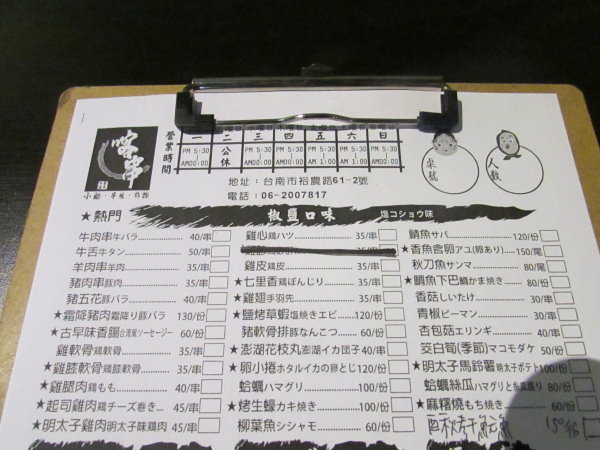 喀串
小酌・串燒・炸物
營業時間
一 二 三 四 五 六 日
PM 5:30 AM00:00
公休
PM 5:30 AM00:00
PM 5:30 AM00:00
PM 5:30 AM 1:00
PM 5:30 AM 1:00
PM 5:30 AM00:00
桌號
人數
地址：台南市裕農路61-2號
電話：06-2007817
★熱門
椒鹽口味
塩コショウ味
牛肉串牛バラ 40/串
牛舌牛タン 50/串
羊肉串羊肉 35/串
豬肉串豚肉 35/串
豬五花豚バラ 40/串
★霜降豬肉霜降り豚バラ 130/份
★古早味香腸台湾風ソーセージ 60/份
雞軟骨鶏軟骨 35/串
★雞膝軟骨鶏膝軟骨 35/串
★雞腿肉鶏もも 40/串
★起司雞肉鶏チーズ巻き 45/串
★明太子雞肉明太子味鶏肉 45/串
雞心鶏ハツ 35/串
35/串
雞皮鶏皮 35/串
★七里香鶏ぼんじり 35/串
★雞翅手羽先 35/串
★鹽烤草蝦塩焼きエビ 120/份
豬軟骨排豚なんこつ 60/份
★澎湖花枝丸澎湖イカ団子 40/串
★卵小捲ホタルイカの卵とじ 120/份
蛤蠣ハマグリ 100/份
★烤生蠔カキ焼き 100/份
柳葉魚シシャモ 60/份
鯖魚サバ 120/份
★香魚含卵アユ(卵あり) 150/尾
秋刀魚サンマ 80/尾
★鯛魚下巴鯛かま焼き 80/份
香菇しいたけ 30/串
青椒ピーマン 30/串
杏包菇エリンギ 40/串
茭白筍(季節)マコモダケ 50/份
★明太子馬鈴薯明太子ポテト 100/份
蛤蠣絲瓜ハマグリと糸瓜盛り 80/份
★麻糬燒もち焼き 60/份
150/份